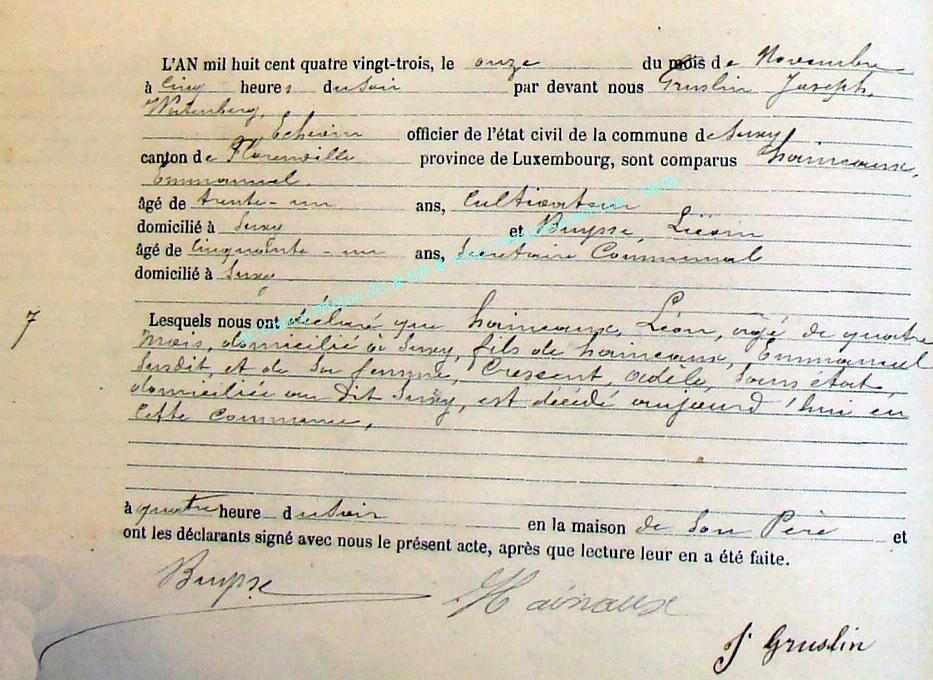 L'AN mil huit cent quatre vingt-trois, le onze du mois de Novembre
à Cinq heures du Soir par devant nous Gruslin Joseph,
Echevin officier de l'état civil de la commune de Suxy
canton de Florenville province de Luxembourg, sont comparus hainaux,
Emmanuel.
âgé de trente-un ans, Cultivateur
domicilié à Suxy et Buysse, Léon
âgé de Cinquante-un ans, Secrétaire Communal
domicilié à Suxy
7
Lesquels nous ont déclaré que hainaux, Léon, agé de quatre
mois, domicilié à Suxy, fils de hainaux, Emmanuel
Susdit, et de Sa femme, Crescent, Adèle, Sans état,
domiciliée au dit Suxy, est décédé aujourd'hui en
Cette Commune,
à quatre heure du Soir en la maison de Son Père et
ont les déclarants signé avec nous le présent acte, après que lecture leur en a été faite.
Buysse
Hainaux
J Gruslin